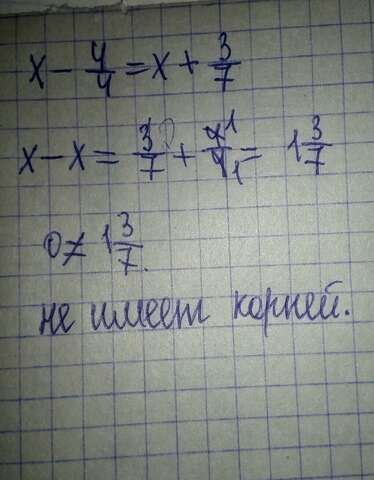 x - 4/4 = x + 3/7
x - x = 3/7 + 4/4 1 1 = 1 3/7
0 ≠ 1 3/7.
не имеет корней.